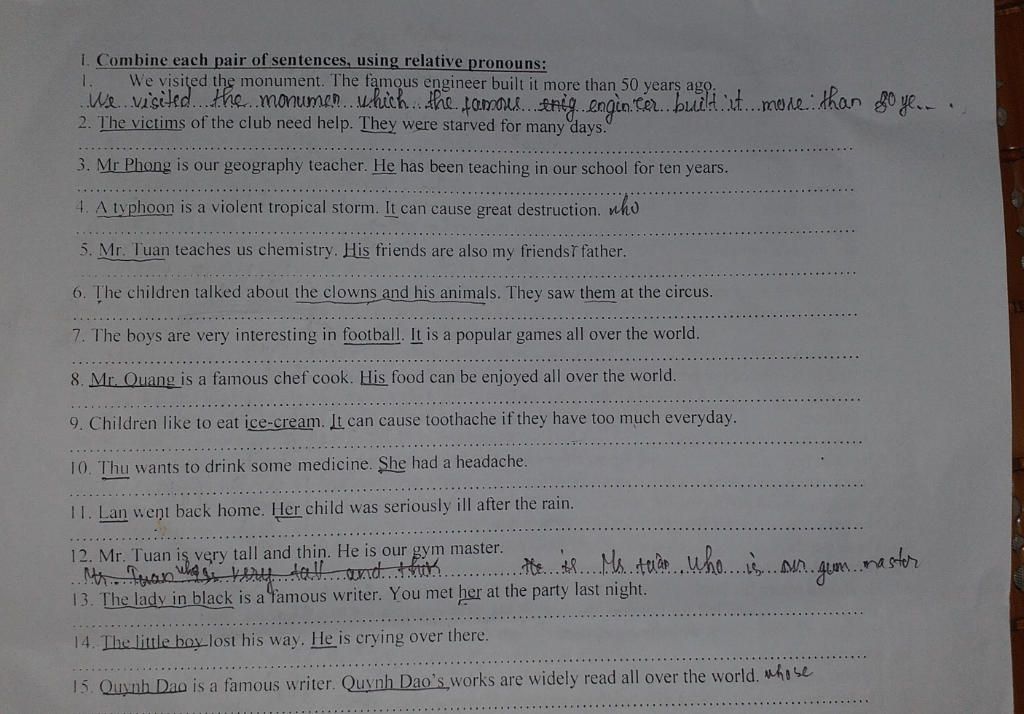 I. Combine each pair of sentences, using relative pronouns:
1. We visited the monument. The famous engineer built it more than 50 years ago.
We visited the monumen which the famous engineer built it more than 50 ye
2. The victims of the club need help. They were starved for many days.
3. Mr Phong is our geography teacher. He has been teaching in our school for ten years.
4. A typhoon is a violent tropical storm. It can cause great destruction. who
5. Mr. Tuan teaches us chemistry. His friends are also my friends' father.
6. The children talked about the clowns and his animals. They saw them at the circus.
7. The boys are very interesting in football. It is a popular games all over the world.
8. Mr. Quang is a famous chef cook. His food can be enjoyed all over the world.
9. Children like to eat ice-cream. It can cause toothache if they have too much everyday.
10. Thu wants to drink some medicine. She had a headache.
11. Lan went back home. Her child was seriously ill after the rain.
12. Mr. Tuan is very tall and thin. He is our gym master.
Mr. Tuan who is very tall and thin He is Mr. tuân who is our gym master
13. The lady in black is a famous writer. You met her at the party last night.
14. The little boy lost his way. He is crying over there.
15. Quynh Dao is a famous writer. Quynh Dao's works are widely read all over the world. whose